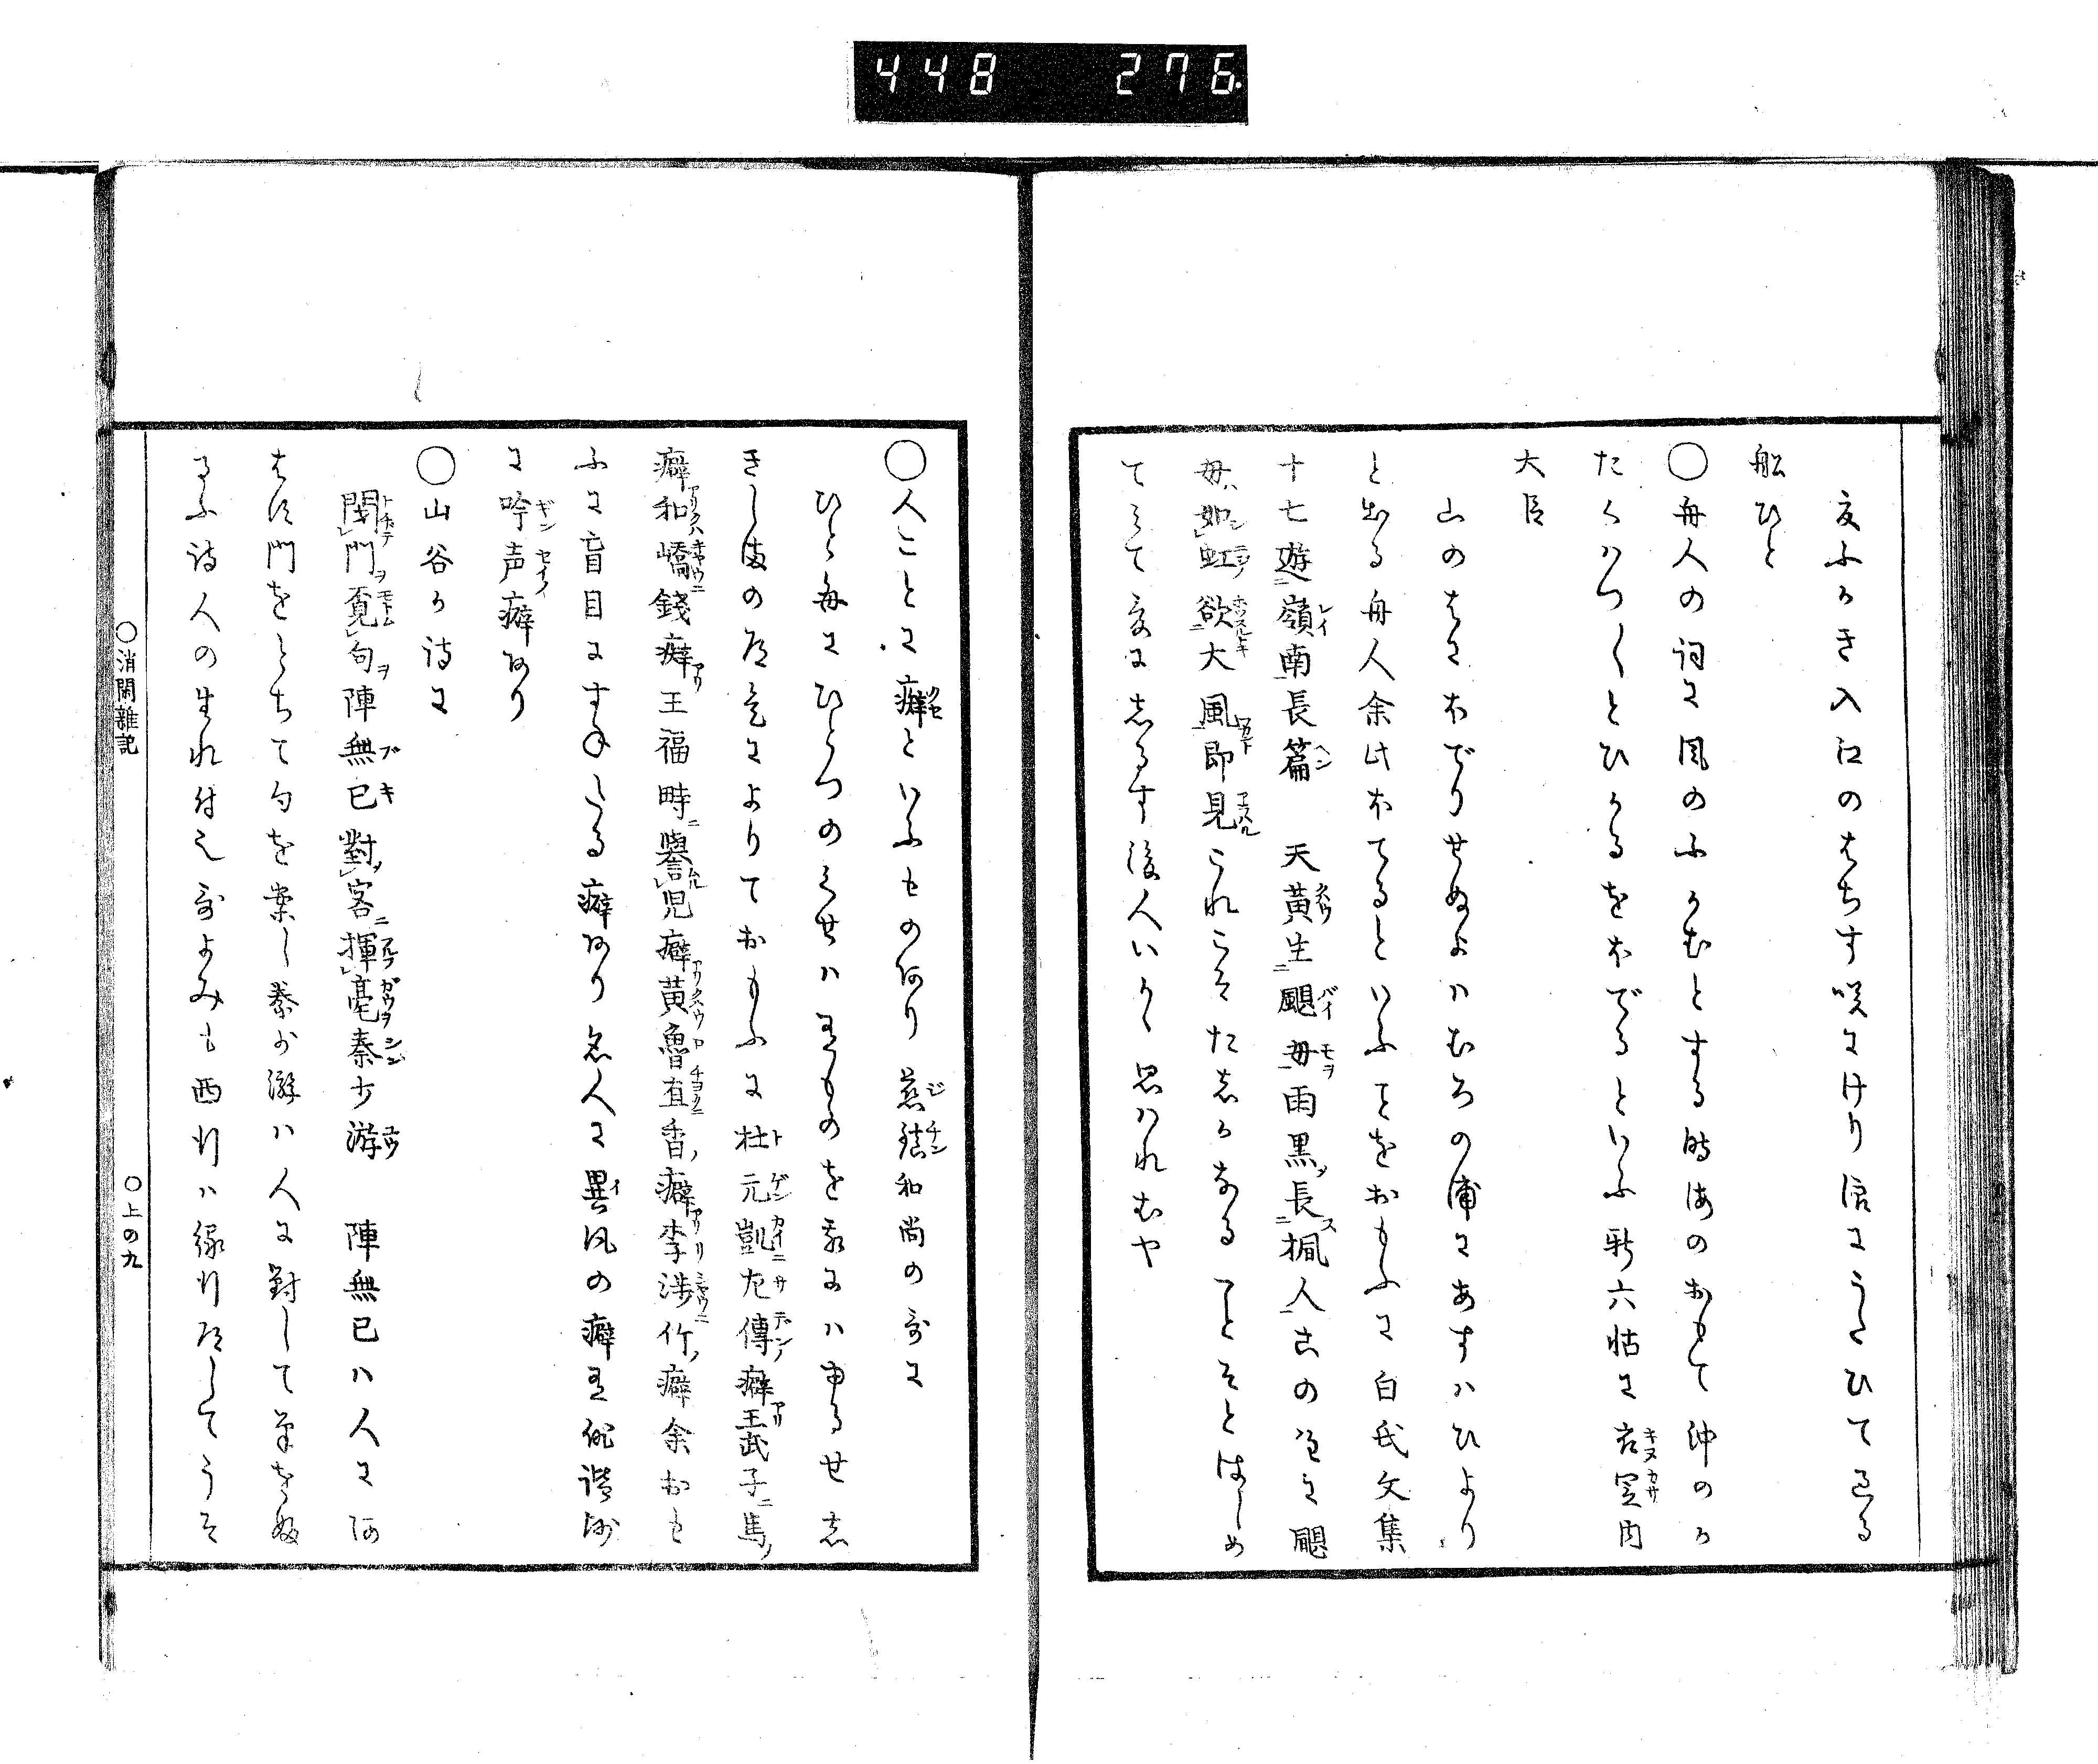 448 276
夏ふかき入江のはちす咲にけり浪にうたひて過る
船ひと
〇舟人の詞に風のふかむとする時海のおもて沖のか
たくわつ〱とひかるをホでるといふ新六帖に衣笠内
大臣
山のはにホでりせぬよハむろの浦にあすハひより
と出る舟人余此ホてるといふことをおもふに白氏文集
十七遊嶺南長篇 天黄生颶母雨黒長楓人古の注に颶
母如虹欲大風即見これこそたしかなることそとはしめ
てミて爰にしるす後人いかゝ思ハれむや
〇人ことに癖といふもの阿り慈鎮和尚の哥に
ひと毎にひとつのくせハ有ものを我にハゆるせし
きしまの道是によりておもふに杜元凱左傳癖王武子馬
癖和嶠錢癖王福畤譽児癖黄魯直香癖李渉竹癖余おも
ふに盲目にすねたる癖阿り名人に異風の癖有俳諧師
に吟声癖阿り
〇山谷か詩に
閉門覓句陳無已對客揮毫秦少游 陳無已ハ人に阿
はす門をとちて句を案し秦少游ハ人に對して筆をふ
るふ詩人の生れ付也哥よみも西行ハ縁行道してうそ
〇消閑雑記
〇上の九